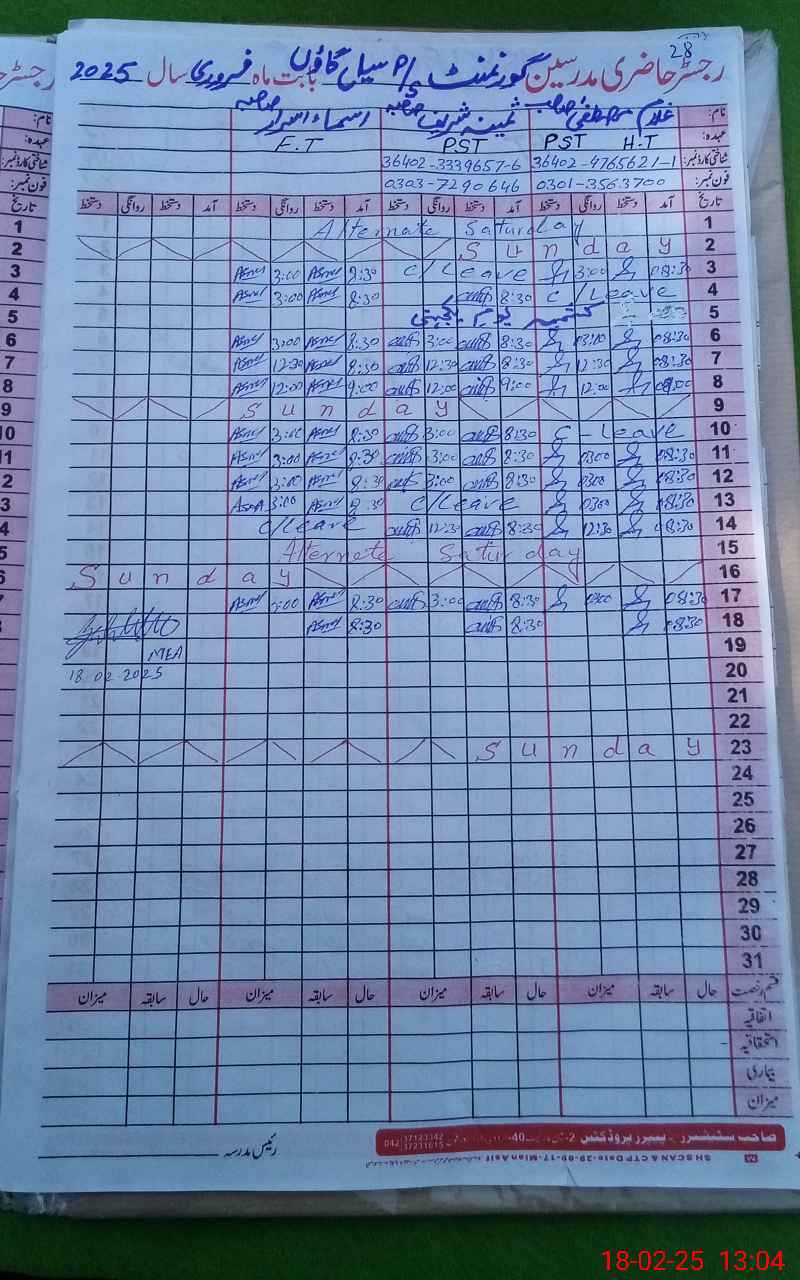 28
رجسٹر حاضری مدرسین گورنمنٹ P/S سیال گاؤں بابت ماہ فروری سال 2025
نام: غلام مصطفیٰ صاحب ثمینہ شریف صاحبہ اسماء اسرار صاحبہ
عہدہ: PST H.T PST F.T
شناختی کارڈ نمبر: 36402-4765621-1 36402-3339657-6
فون نمبر: 0301-3563700 0303-7290646
تاریخ آمد دستخط روانگی دستخط آمد دستخط روانگی دستخط آمد دستخط روانگی دستخط آمد دستخط روانگی دستخط
1 Alternate Saturday
2 Sunday
3 08:30 3:00 C/Leave 8:30 3:00
4 C/Leave 8:30 8:30 3:00
5 یوم یکجہتی کشمیر
6 08:30 03:00 8:30 3:00 8:30 3:00
7 08:30 12:30 8:30 12:30 8:30 12:30
8 09:00 12:00 9:00 12:00 9:00 12:00
9 Sunday
10 C-Leave 8:30 3:00 8:30 3:00
11 08:30 0300 8:30 3:00 8:30 3:00
12 08:30 0300 8:30 3:00 8:30 3:00
13 08:30 0300 C/Leave 8:30 3:00
14 08:30 12:30 8:30 12:30 C/Leave
15 Alternate Saturday
16 Sunday
17 08:30 0300 8:30 3:00 8:30 3:00
18 08:30 8:30 8:30
19 MEA
20 18-02-2025
21
22
23 Sunday
24
25
26
27
28
29
30
31
قسم رخصت حال سابقہ میزان حال سابقہ میزان حال سابقہ میزان حال سابقہ میزان
اتفاقیہ
استحقاقیہ
بیماری
میزان
رئیس مدرسہ
042 37123342
37231615
SH SCAN & CTP Date-29-09-17-Mian Asif
18-02-25 13:04